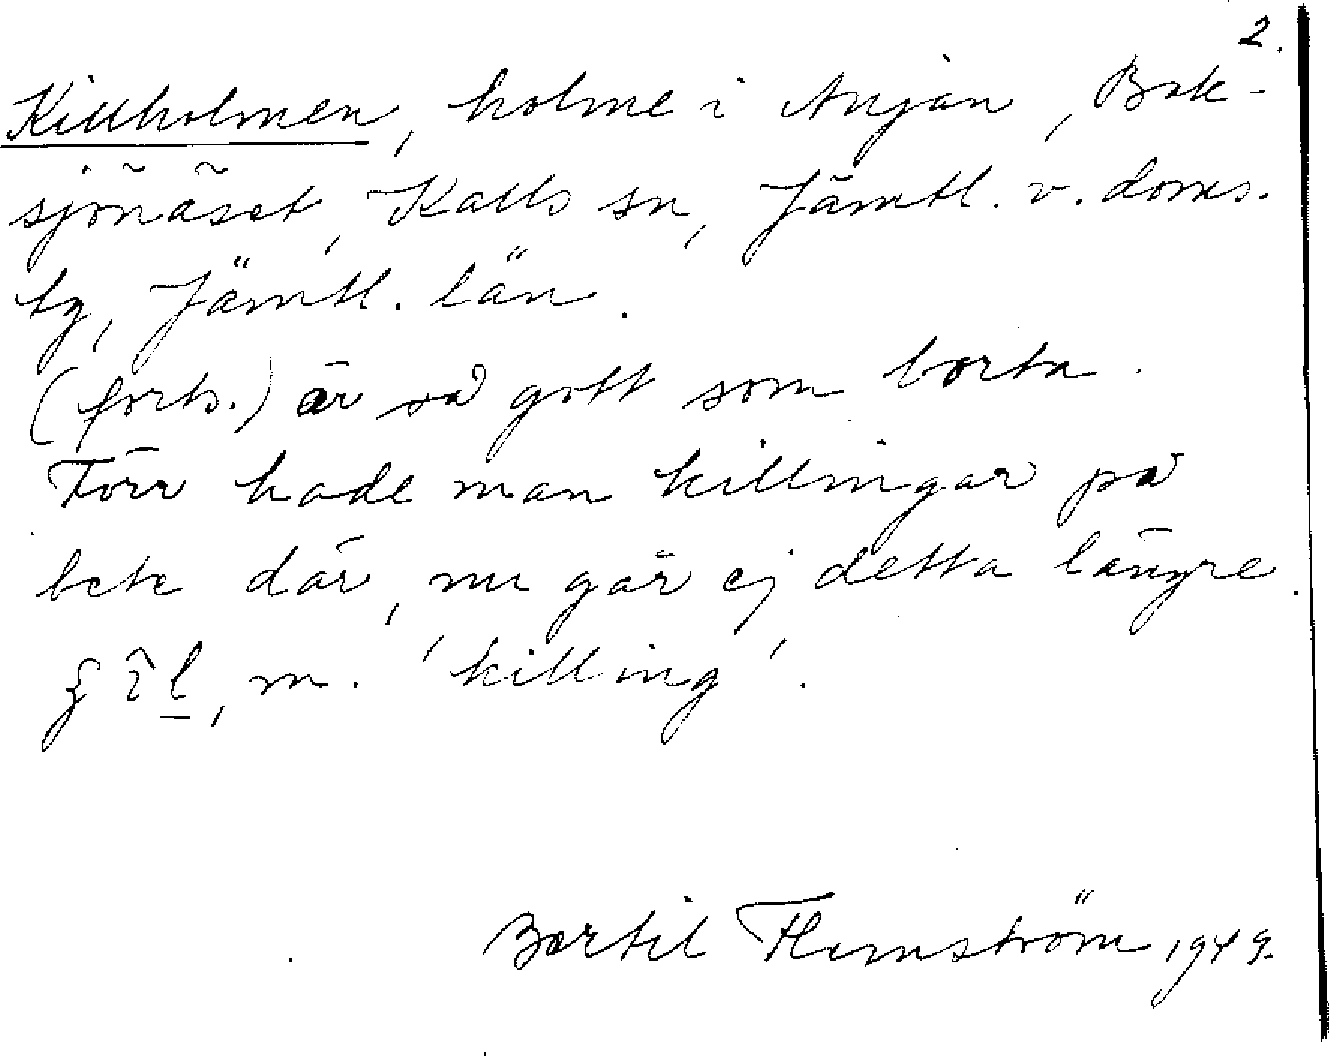 2.
Killholmen, holme i Anjan, Bak-
sjönäset, Kalls sn, Jämtl. v. doms.
hg, Jämtl. län.
(forts.) är så gott som borta.
Förr hade man killingar på
bete där, nu går ej detta längre.
m. 'killing'.
Bertil Flemström 1949.